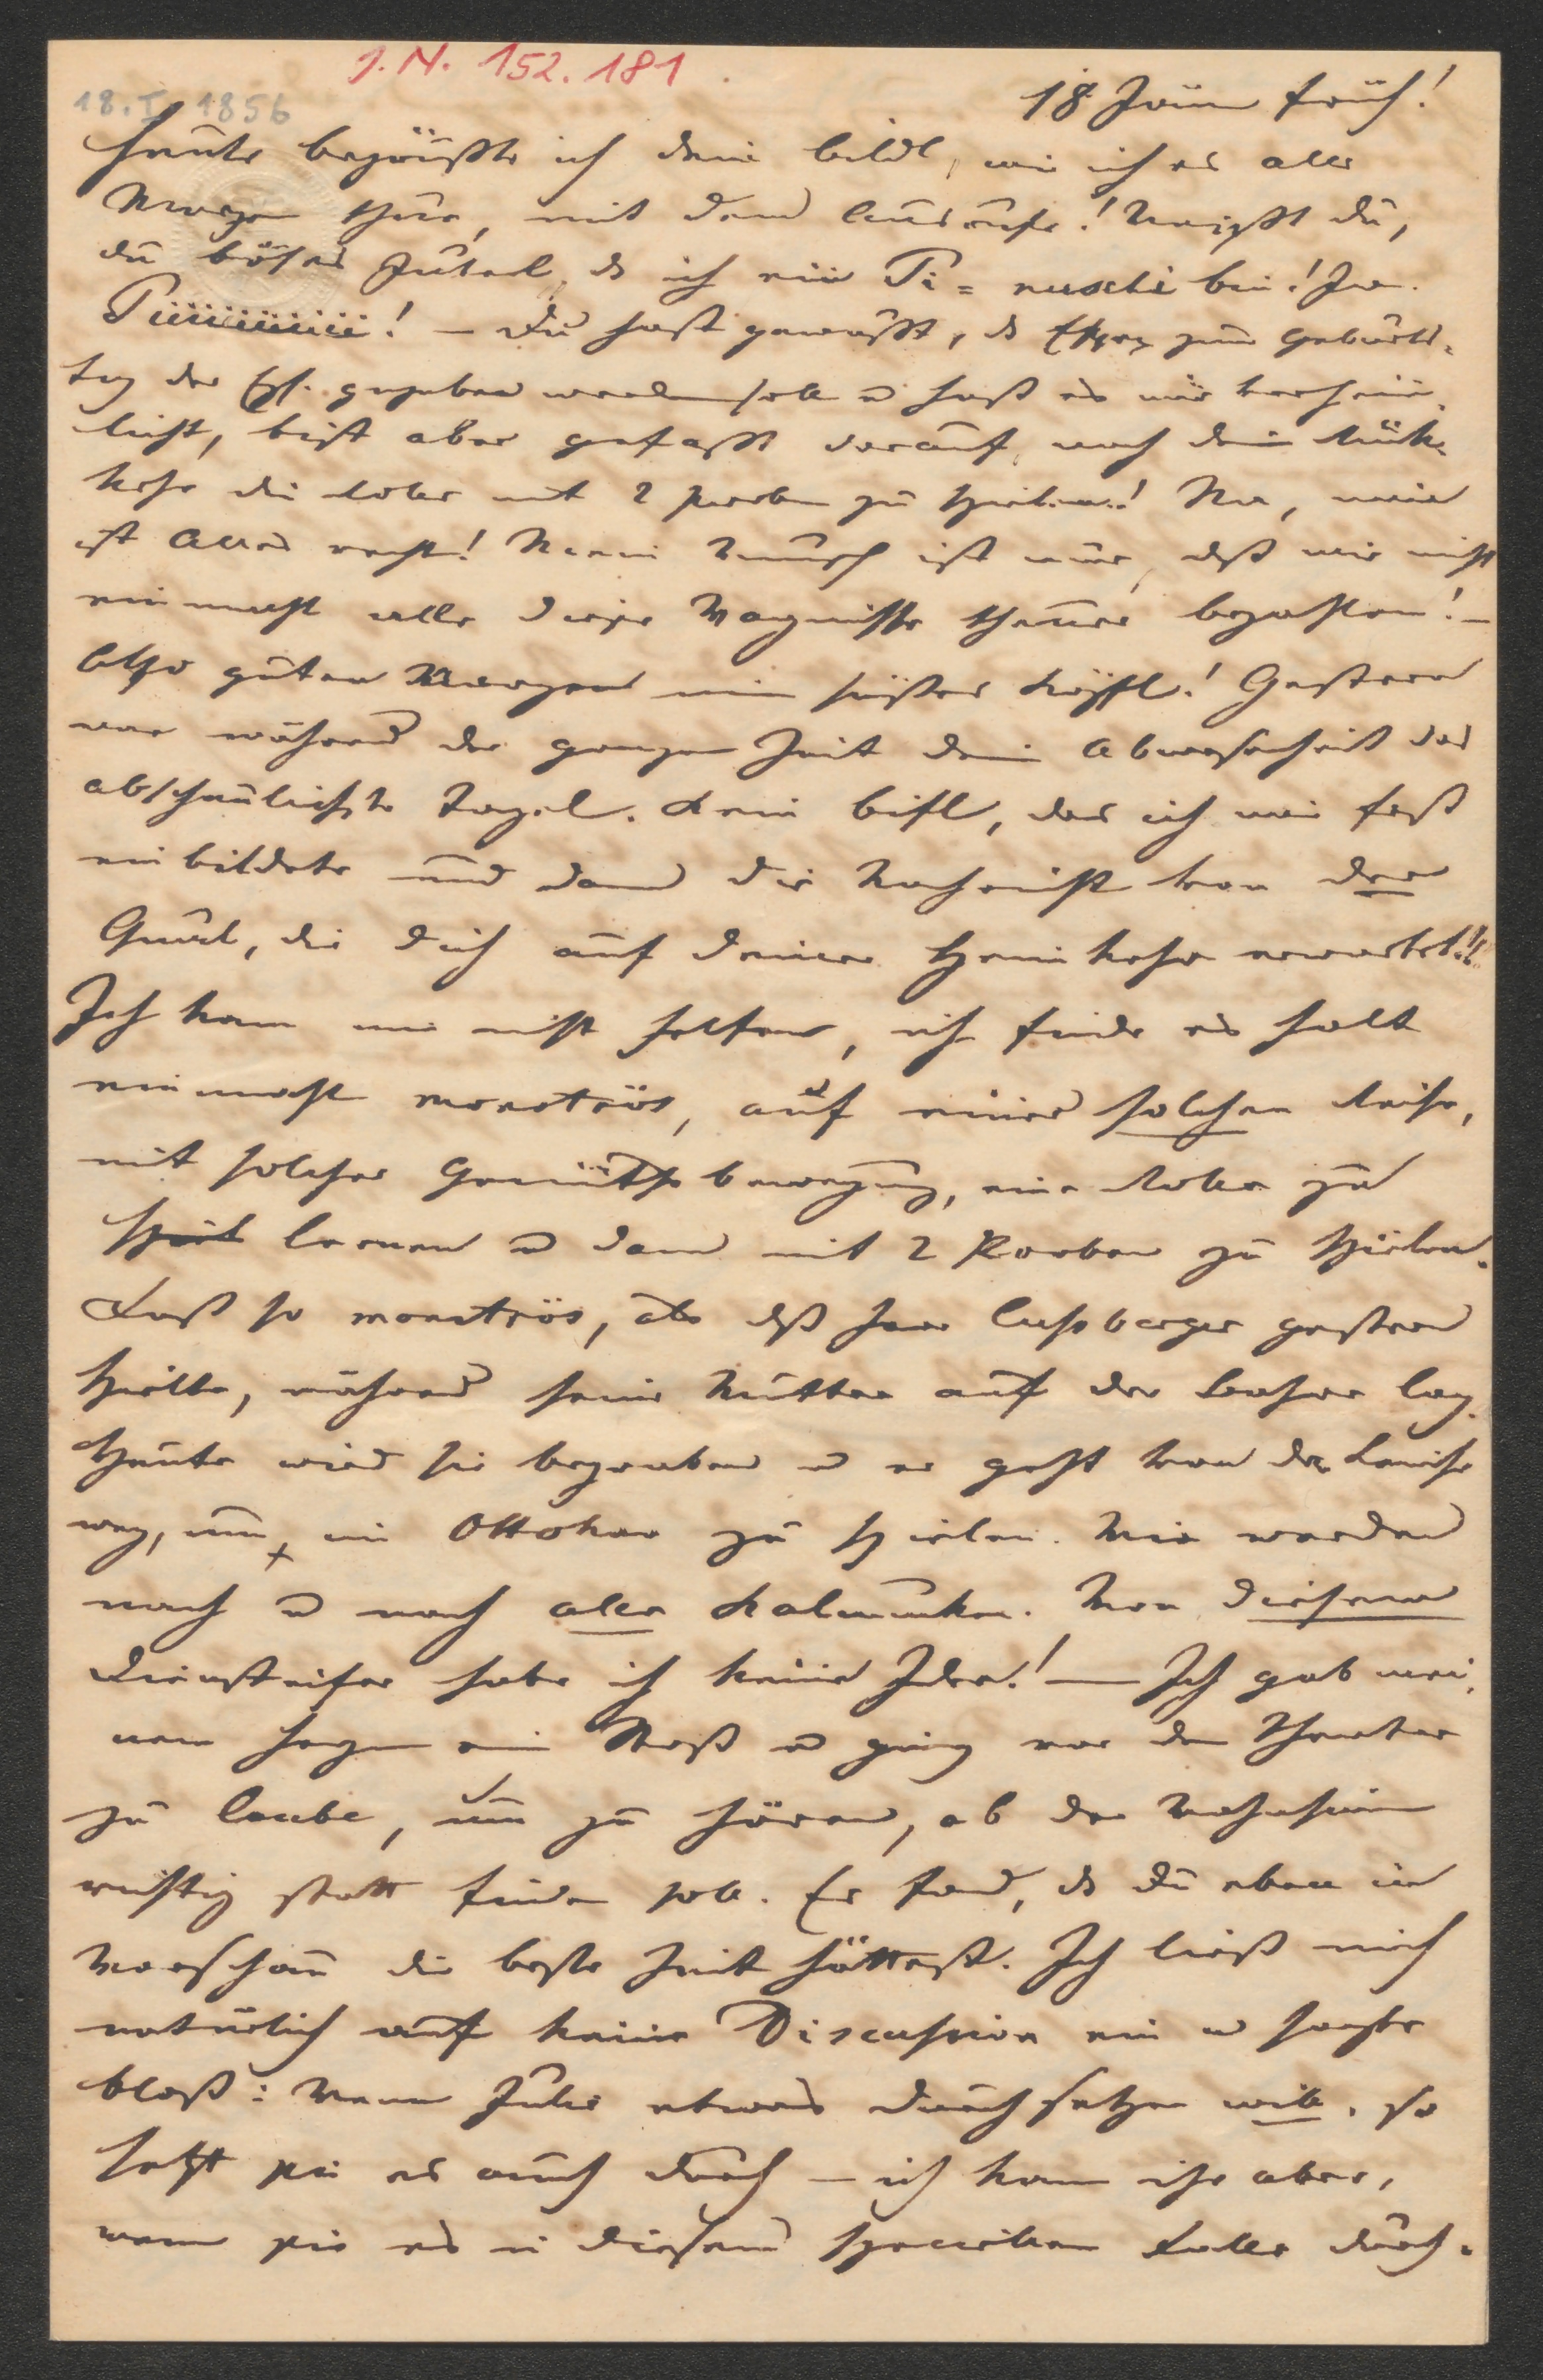 J. N. 152.181
18. I 1856
18 Jän früh!
Heute begrüßte ich dein Bildl, wie ich es alle
Morgen thue, mit dem Ausrufe! Weißt du,
du böses Juterl, ds ich ein Ti = nuschi bin! Ja.
Tiiiiiiiiiiii! – Du hast gewußt, ds Essex zum Geburts-
tag der Ezh. gegeben werden soll u hast es mir verheim-
licht, bist aber gefaßt darauf, nach dein Rük-
kehr die Rolle mit 2 Proben zu spielen! Na, mir
ist Alles recht! Mein Wunsch ist nur, dß wir nicht
einmahl alle diese Wagnisse theuer bezahlen! –
Also guten Morgen mein süßes Köpfl! Gestern
war während der ganzen Zeit dein Abwesenheit das
abscheulichste Tagel. Kein Bifl, das ich mir fest
einbildete und dann die Nachricht von der
Qual, die dich auf deiner Heimkehr erwartet!!
Ich kann mir nicht helfen, ich finde es halt
einmahl monströs, auf einer solchen Reise,
mit solcher Gemüthsbewegung, eine Rolle zu
spiel lernen u dann mit 2 Proben zu spielen.
Fast so monströs, als dß Herr Lußberger gestern
spielte, während seine Mutter auf der Bahre lag.
Heute wird sie begraben u er geht von der Leiche
weg, um im Ottokar zu spielen. Wir werden
nach u nach alle Kalmuken. Von diesem
Diensteifer habe ich keine Idee! – Ich gab mei-
nem Herzen ein Stoß u ging vor dem Theater
zu Laube, um zu hören, ob der Wahnsinn
richtig statt finden soll. Er fand, ds du eben in
Warschau die beste Zeit hättest. Ich ließ mich
natürlich auf keine Discussion ein u sagte
bloß: Wenn Julie etwas durchsetzen will, so
setzt sie es auch durch – ich kann ihr aber,
wenn sie es in diesem speciellen Falle durch-